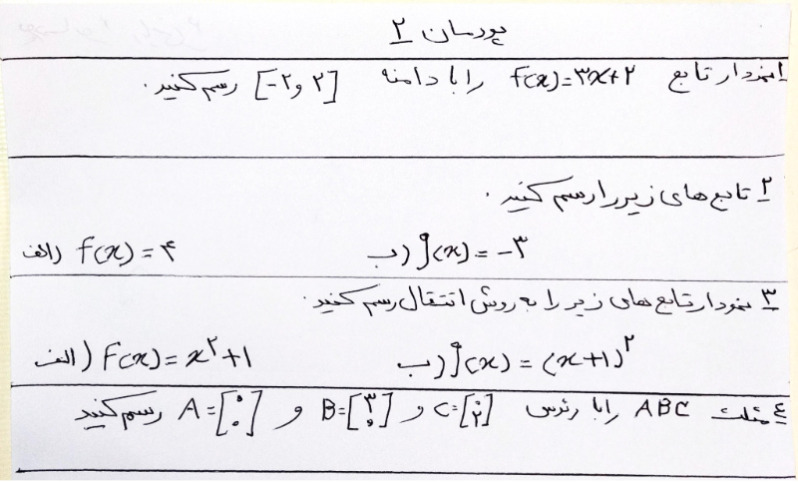 پودمان ۲
۱ نمودار تابع f(x)=۳x+۲ را با دامنه [-۲ و ۲] رسم کنید.
۲ تابع های زیر را رسم کنید.
الف) f(x) = ۴ ب) g(x) = -۳
۳ نمودار تابع های زیر را به روش انتقال رسم کنید.
الف) f(x) = x^۲+۱ ب) g(x) = (x+۱)^۲
٤ مثلث ABC را با رئوس C=[۰ ۲] و B=[۳ ۰] و A=[۰ ۰] رسم کنید